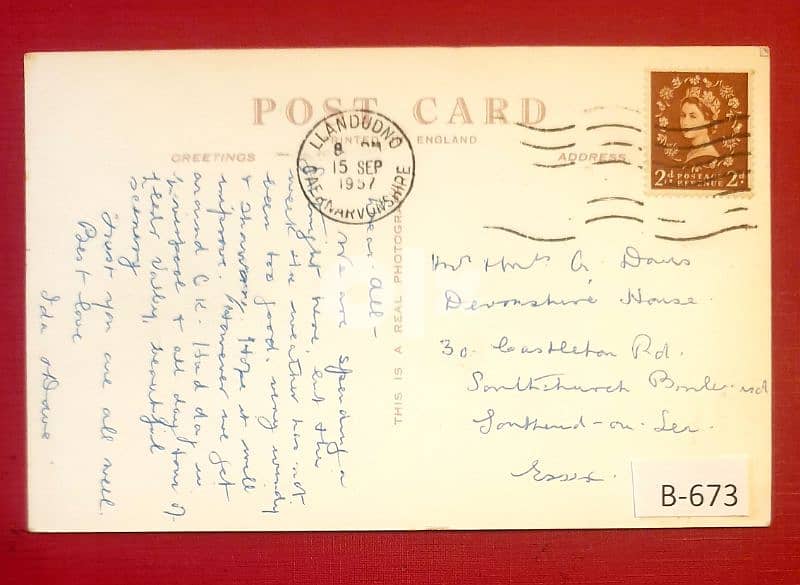 POST CARD
PRINTED IN ENGLAND
GREETINGS
ADDRESS
LLANDUDNO
8 PM
15 SEP
1957
CAERNARVONSHIRE
2d POSTAGE REVENUE 2d
THIS IS A REAL PHOTOGRA
Dear All-
We are spending a
fortnight here, but this
week the weather has not
been too good, very windy
& showery. Hope it will
improve. However we get
around O.K. Had day in
Liverpool & all day tour of
Valley, beautiful
scenery
Trust you are all well.
Best love
Ida & Dave
Mr & Mrs G Davis
Devonshire House.
30. Castleton Rd.
Southchurch Boulevard
Southend-on-Sea.
Essex.
B-673